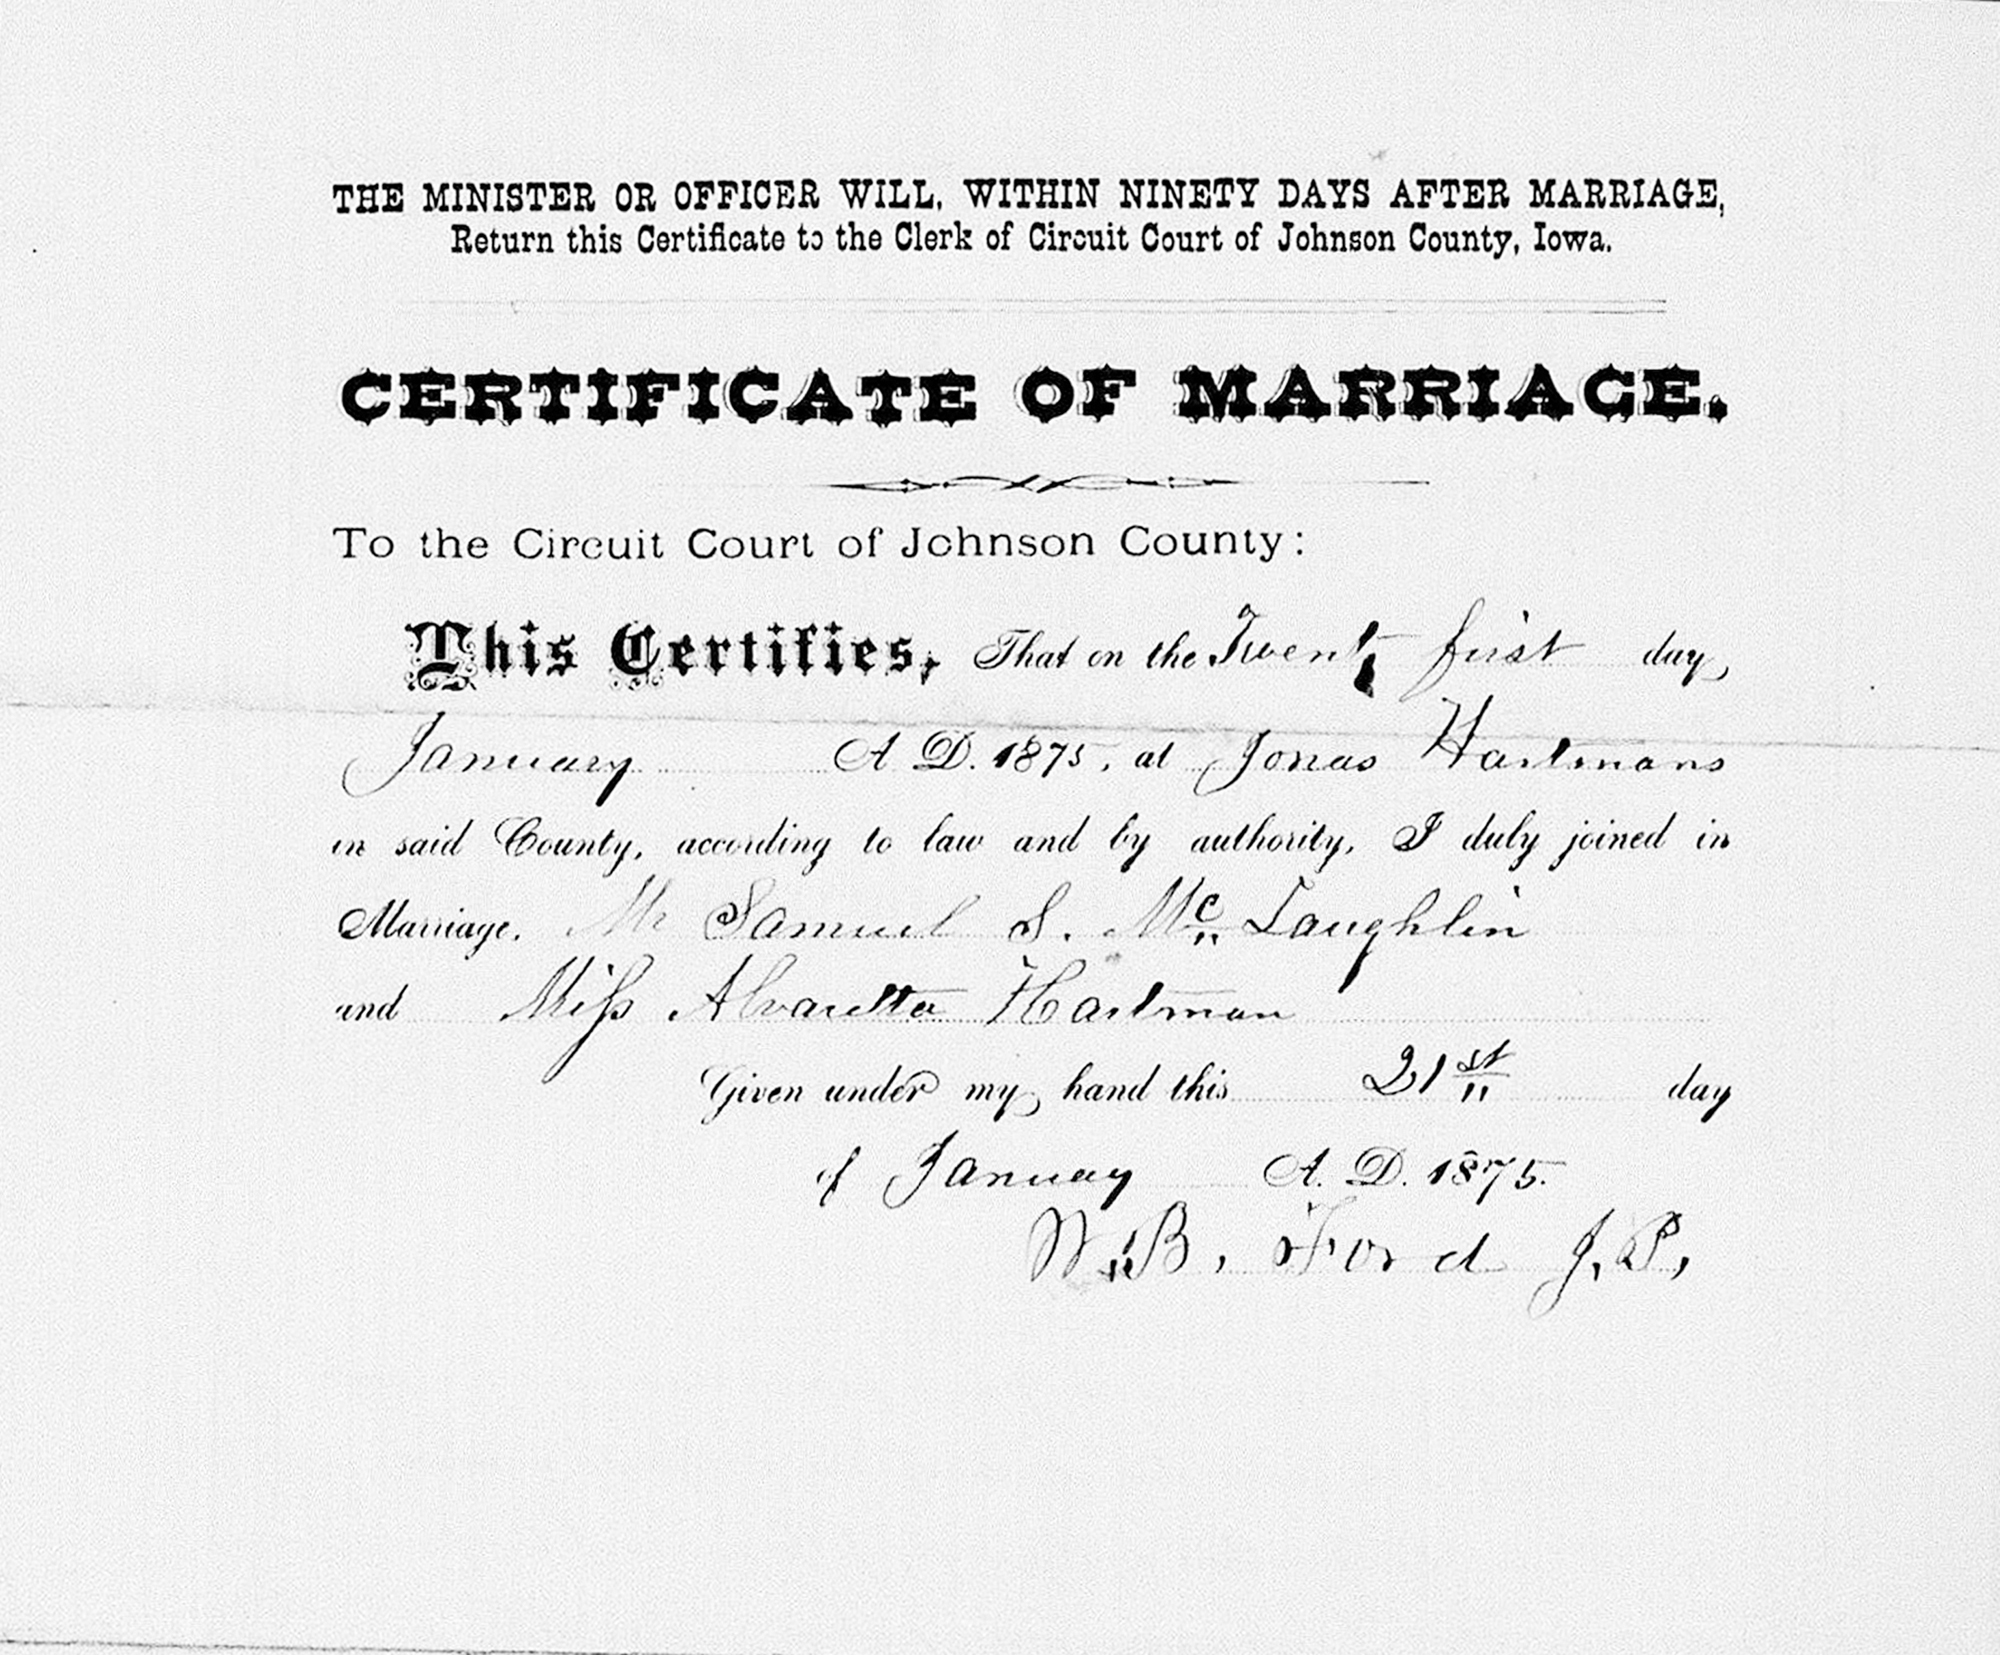 THE MINISTER OR OFFICER WILL, WITHIN NINETY DAYS AFTER MARRIAGE,
Return this Certificate to the Clerk of Circuit Court of Johnson County, Iowa.
CERTIFICATE OF MARRIAGE.
To the Circuit Court of Johnson County:
This Certifies, That on the Twenty first day,
January A D. 1875, at Jonas Hartmans
in said County, according to law and by authority, I duly joined in
Marriage, Mr Samuel S. Mc Laughlin
and Miss Alvaretta Hartman
Given under my hand this 21st day
of January A. D. 1875.
W. B. Ford J. P.